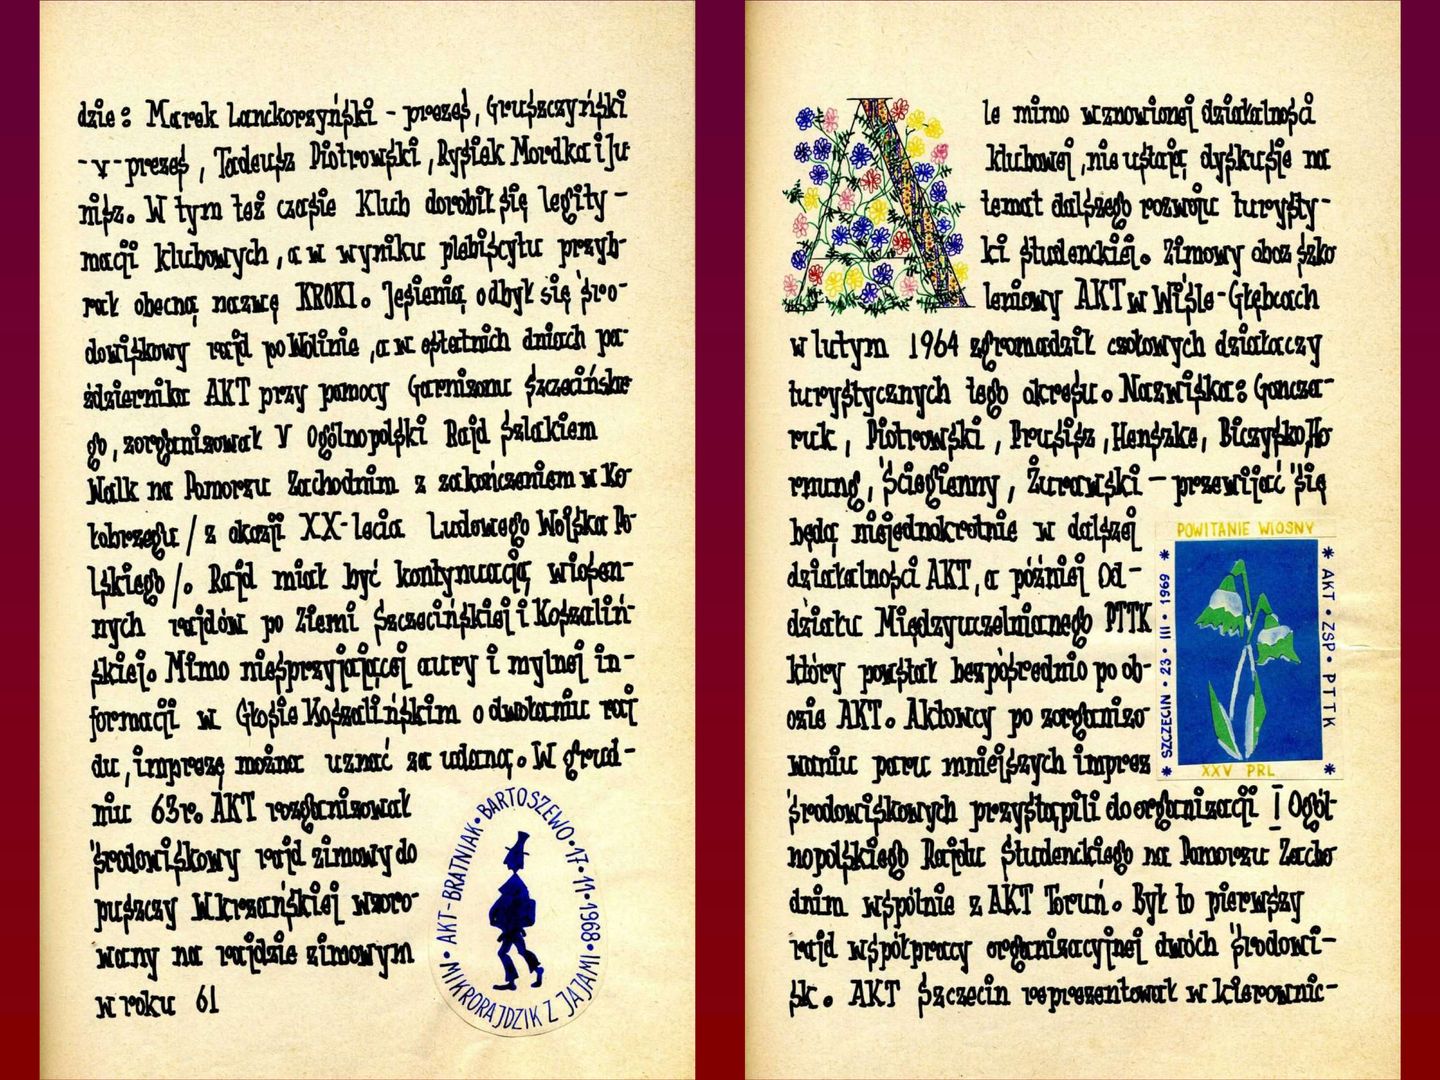 dzie: Marek Lanckorzyński - prezes, Gruszczyński
-v-prezes, Tadeusz Piotrowski, Rysiek Mordka i Ju
nisz. W tym też czasie Klub dorobił się legity-
macji klubowych, a w wyniku plebiscytu przyb-
rał obecną nazwę KROKI. Jesienią odbył się śro-
dowiskowy rajd po Wolinie, a w ostatnich dniach pa-
ździernika AKT przy pomocy Garnizonu Szczecińskie
go, zorganizował V Ogólnopolski Rajd Szlakiem
Walk na Pomorzu Zachodnim z zakończeniem w Ko
łobrzegu /z okazji XX-lecia Ludowego Wojska Po-
lskiego/. Rajd miał być kontynuacją wiosen-
nych rajdów po Ziemi Szczecińskiej i Koszaliń-
skiej. Mimo niesprzyjającej aury i mylnej in-
formacji w Głosie Koszalińskim o odwołaniu raj
du, imprezę można uznać za udaną. W grud-
niu 63r. AKT rozganizował
środowiskowy rajd zimowy do
puszczy Wkrzańskiej wzoro-
wany na rajdzie zimowym
w roku 61
AKT-BRATNIAK • BARTOSZEWO • 17•11•1968 •
MIKRORAJDZIK Z JAJAMI •
Ale mimo wznowionej działalności
klubowej, nie ustają dyskusje na
temat dalszego rozwoju turysty-
ki studenckiej. Zimowy oboz szko
leniowy AKT w Wiśle-Głębcach
w lutym 1964 zgromadził czołowych działaczy
turystycznych tego okresu. Nazwiska: Goncza-
ruk, Piotrowski, Prusisz, Henszke, Biczysko, Ho
rnung, Ściegienny, Żurawski - przewijać się
będą niejednokrotnie w dalszej
działalności AKT, a później Od-
działu Międzyuczelnianego PTTK
który powstał bezpośrednio po ob-
ozie AKT. Aktowcy po zorganizo-
waniu paru mniejszych imprez
środowiskowych przystąpili do organizacji I Ogól-
nopolskiego Rajdu Studenckiego na Pomorzu Zacho
dnim wspólnie z AKT Toruń. Był to pierwszy
rajd współpracy organizacyjnej dwóch środowi-
sk. AKT Szczecin reprezentował w kierownic-
POWITANIE WIOSNY
* SZCZECIN • 23 • III • 1969 *
* AKT • ZSP • PTTK *
XXV PRL